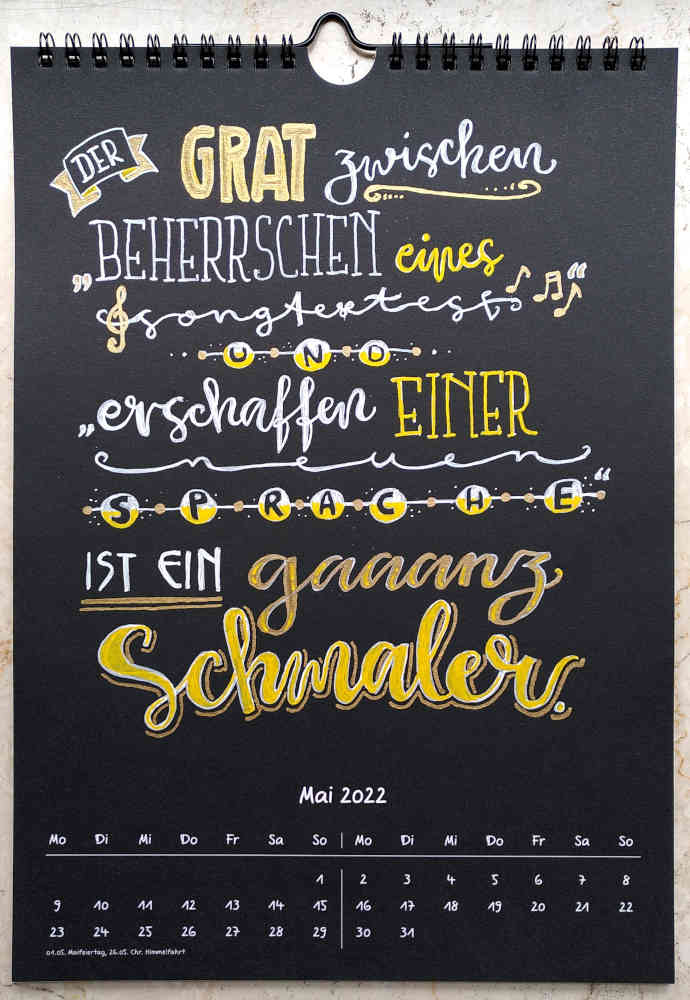 DER GRAT zwischen
„BEHERRSCHEN eines
songtextes“
UND
„erschaffen EINER
neuen
SPRACHE“
IST EIN gaaanz
Schmaler.
Mai 2022
Mo Di Mi Do Fr Sa So Mo Di Mi Do Fr Sa So
1 2 3 4 5 6 7 8
9 10 11 12 13 14 15 16 17 18 19 20 21 22
23 24 25 26 27 28 29 30 31
01.05. Maifeiertag, 26.05. Chr. Himmelfahrt